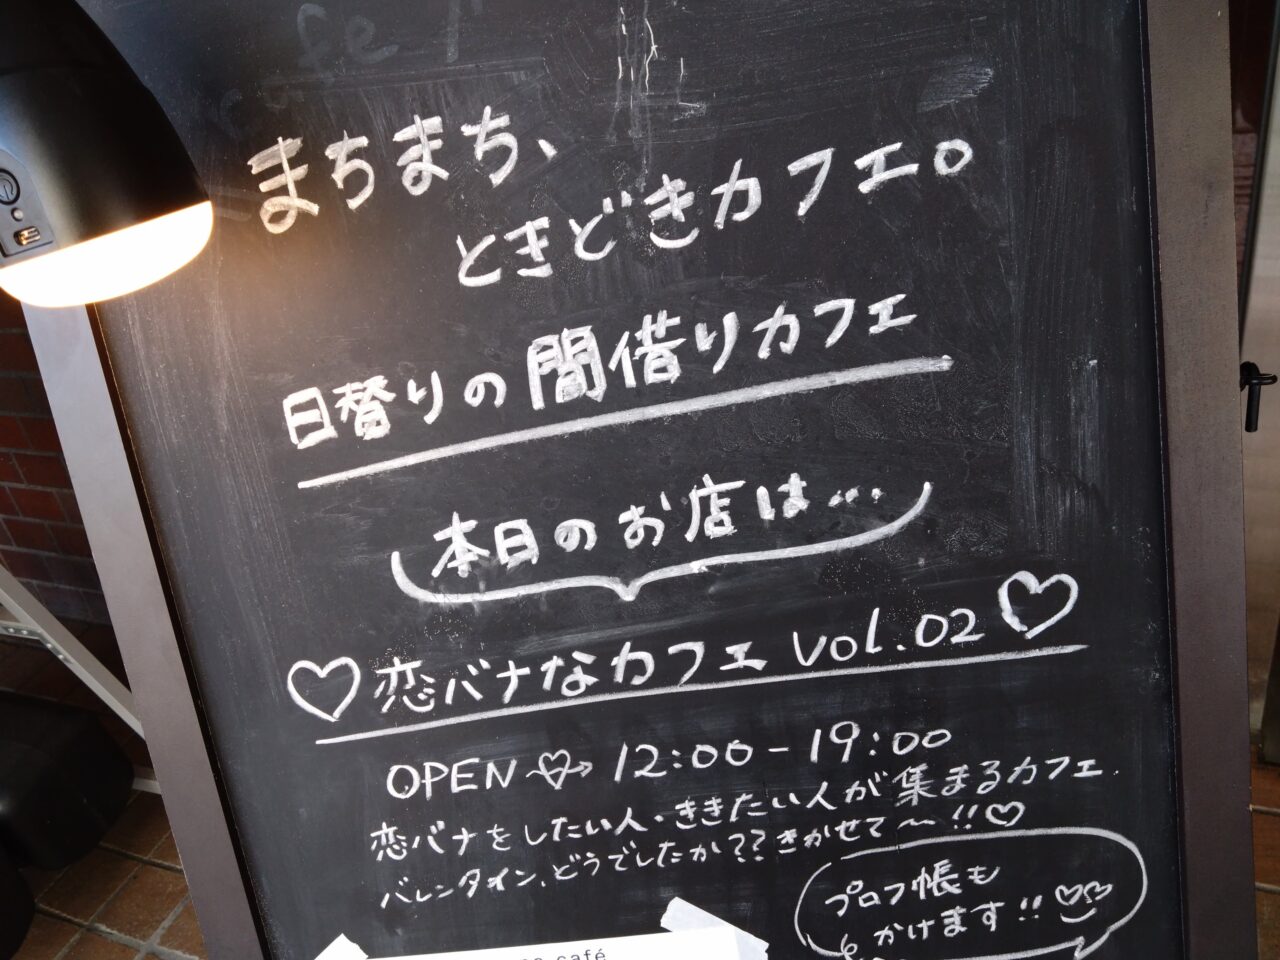 まちまち、
ときどきカフェ。
日替りの間借りカフェ
本日のお店は…
♡恋バナなカフェ vol.02♡
OPEN 12:00-19:00
恋バナをしたい人・ききたい人が集まるカフェ.
バレンタイン、どうでしたか??きかせて〜!!♡
プロフ帳も
かけます!!♡♡
café